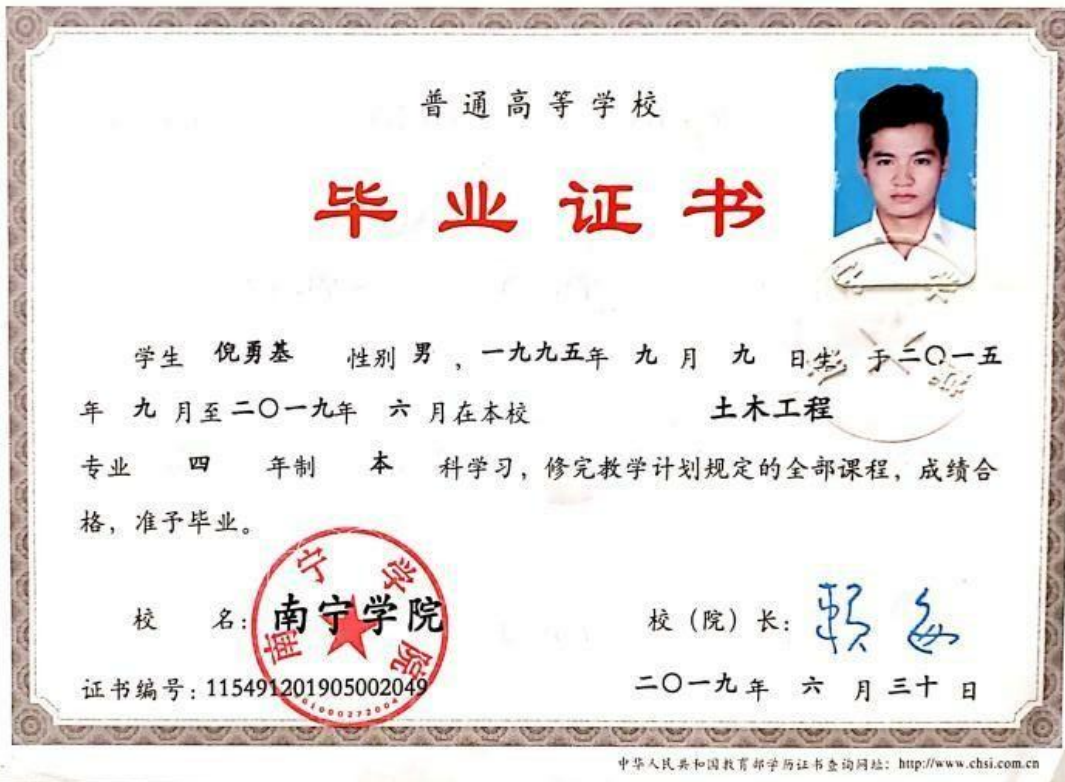 普通高等学校
毕业证书
学生 倪勇基 性别 男 ，一九九五年 九 月 九 日生 于二〇一五
年 九 月至二〇一九年 六 月在本校 土木工程
专业 四 年制 本 科学习，修完教学计划规定的全部课程，成绩合
格，准予毕业。
校 名：南宁学院
南宁学院
校（院）长：
证书编号：115491201905002049
二〇一九年 六 月 三十 日
中华人民共和国教育部学历证书查询网址：http://www.chsi.com.cn